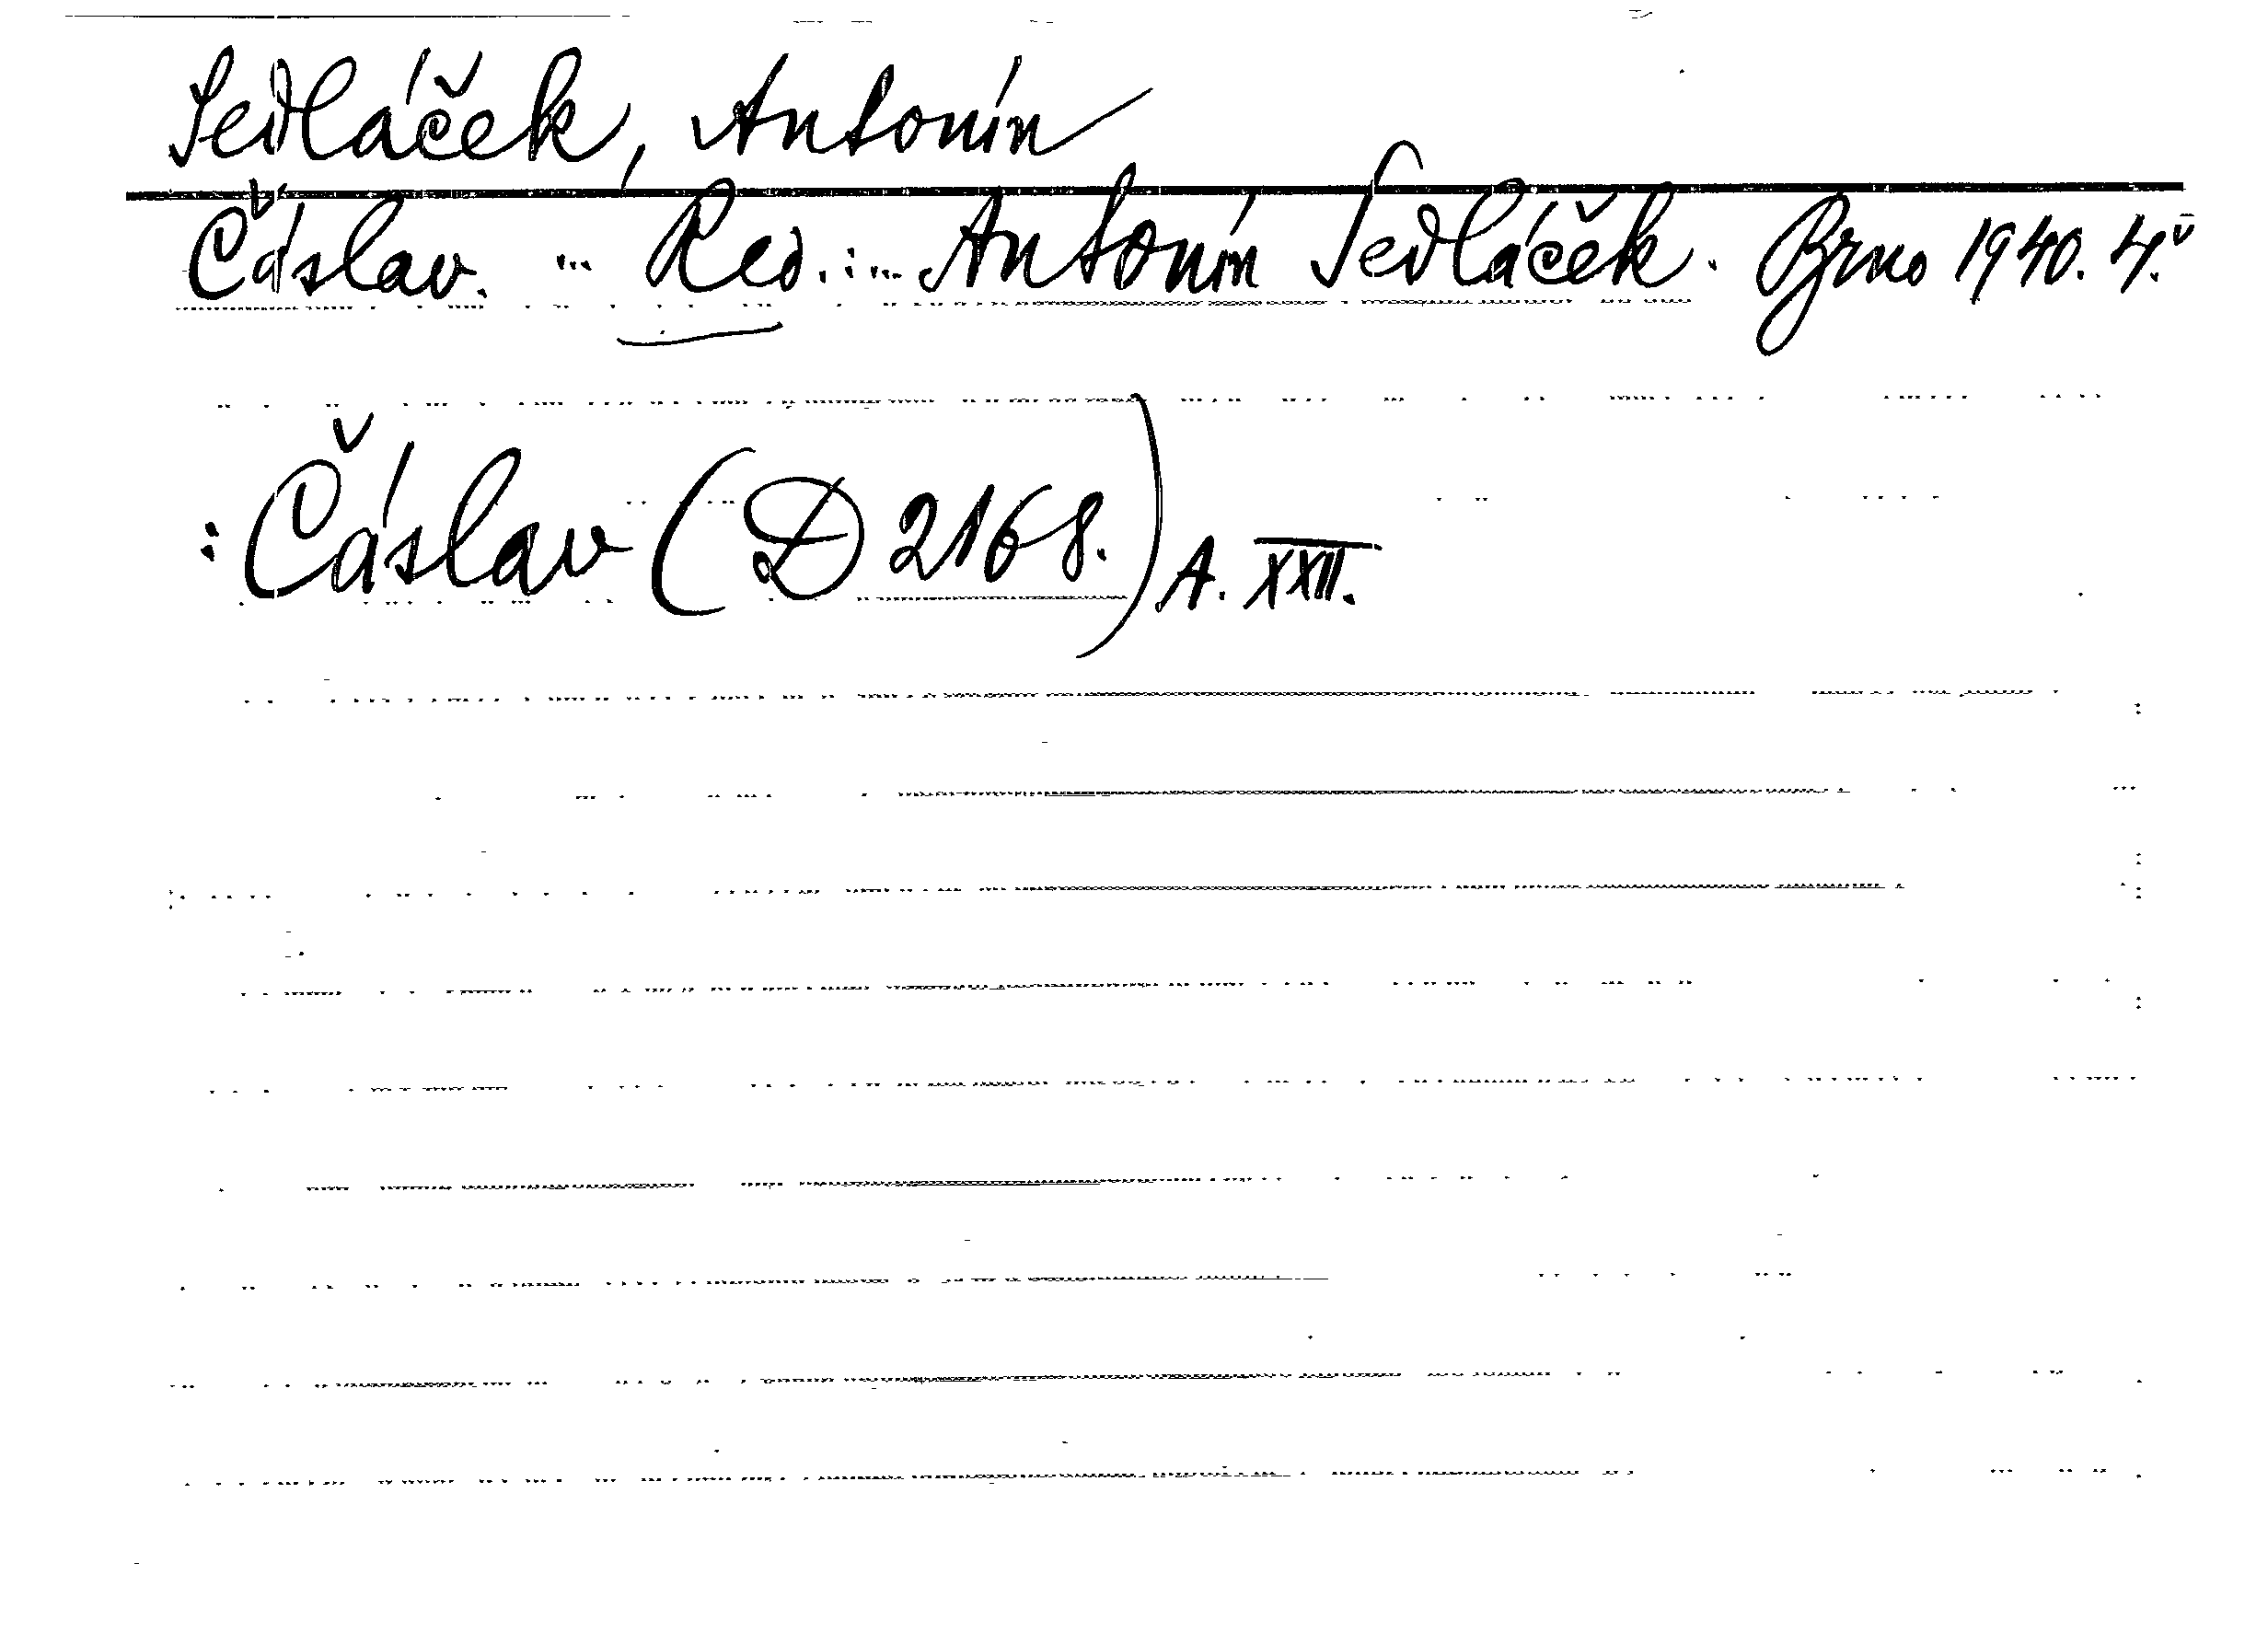 Sedláček, Antonín
Čáslav. ... Red.: ... Antonín Sedláček. Brno 1940. 4.°
: Čáslav (D 2168.) A. XXII.